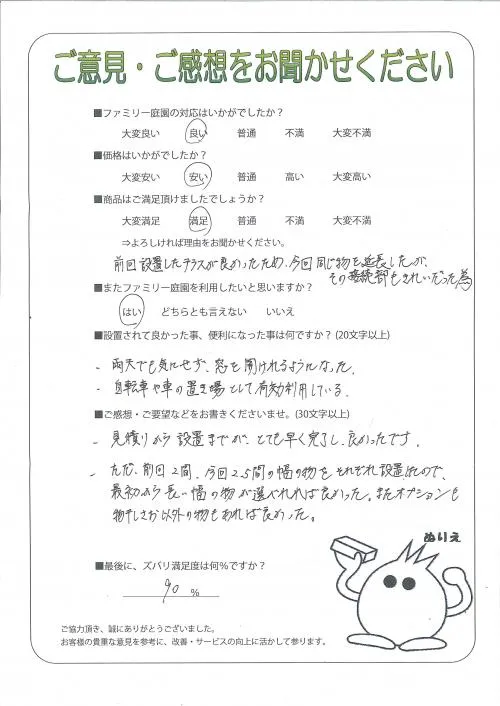 ご意見・ご感想をお聞かせください
■ファミリー庭園の対応はいかがでしたか？
大変良い 良い 普通 不満 大変不満
■価格はいかがでしたか？
大変安い 安い 普通 高い 大変高い
■商品はご満足頂けましたでしょうか？
大変満足 満足 普通 不満 大変不満
⇒よろしければ理由をお聞かせください。
前回設置したテラスが良かったため、今回同じ物を延長したが、
その接続部もきれいだった為
■またファミリー庭園を利用したいと思いますか？
はい どちらとも言えない いいえ
■設置されて良かった事、便利になった事は何ですか？(20文字以上)
- 雨天でも気にせず、窓を開けれるようになった。
- 自転車や車の置き場として有効利用している。
■ご感想・ご要望などをお書きくださいませ。(30文字以上)
- 見積りから設置までが、とても早く完了し、良かったです。
- ただ、前回2間、今回2.5間の幅の物をそれぞれ設置したので、
最初から長い幅の物が選べれば良かった。またオプションも
物干しざお以外の物もあれば良かった。
ぬりえ
■最後に、ズバリ満足度は何％ですか？
90 %
ご協力頂き、誠にありがとうございました。
お客様の貴重な意見を参考に、改善・サービスの向上に活かして参ります。